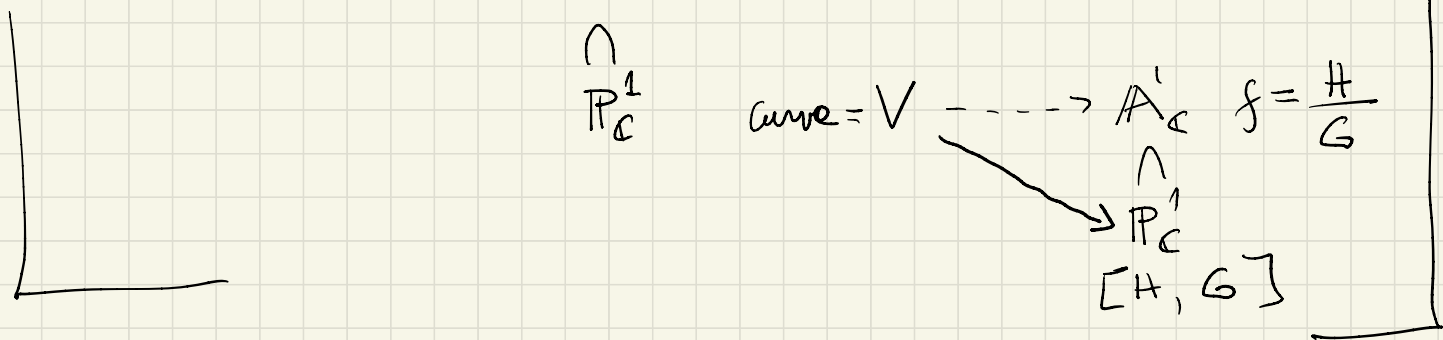 ∩
ℙ¹_ℂ curve = V ----> 𝔸¹_ℂ f = H/G
∩
ℙ¹_ℂ
[H, G]